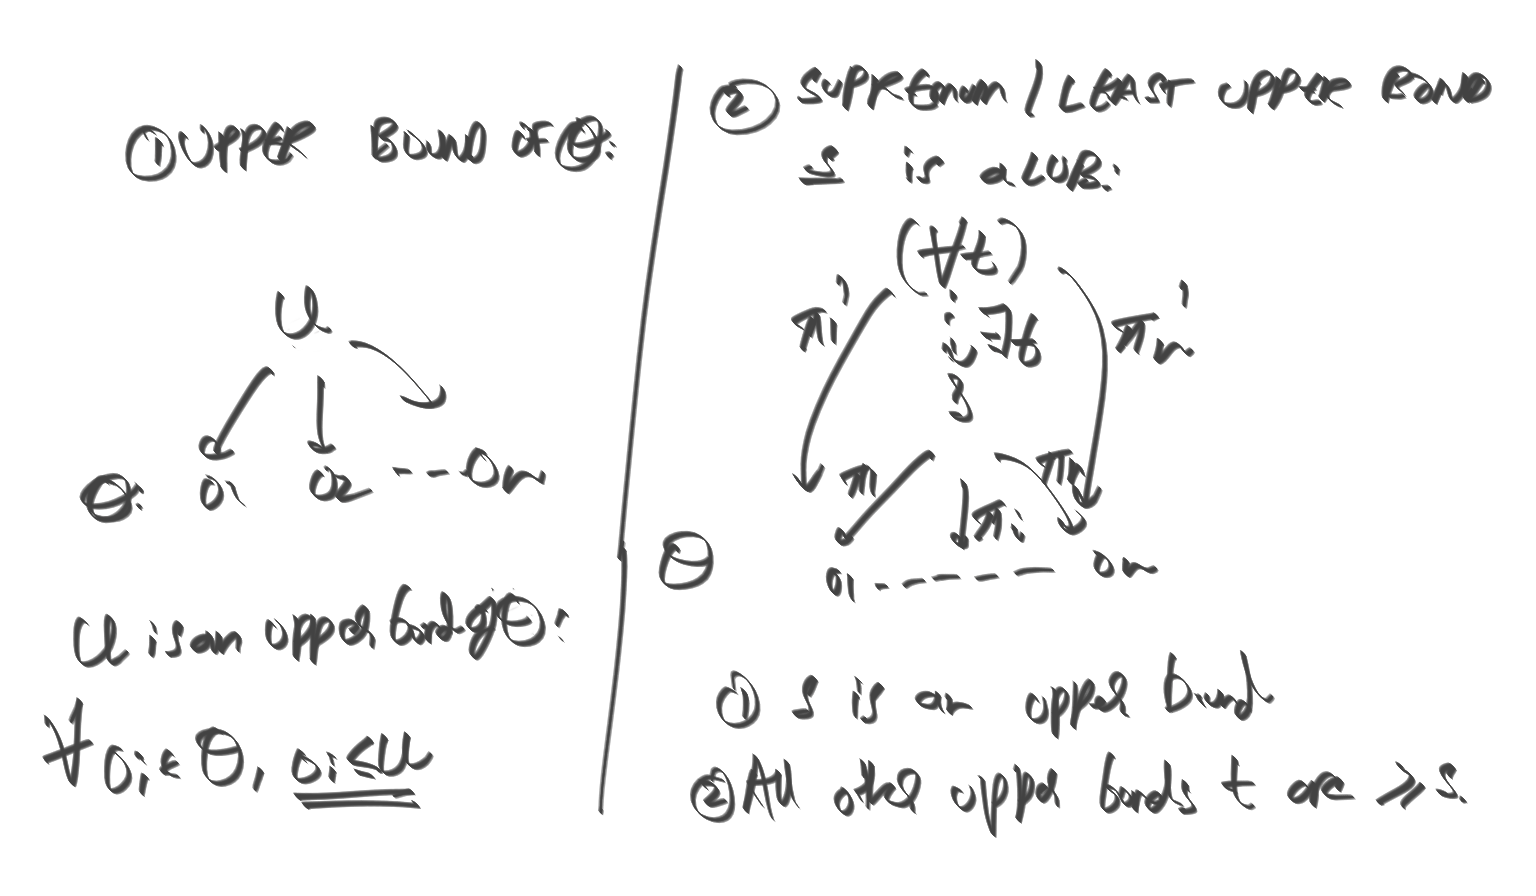 ① UPPER BOUND OF Θ:
U
Θ: O1 O2 --- On
U is an upper bond of Θ:
∀ Oi ∈ Θ, Oi ≤ U
② SUPREMUM / LEAST UPPER BOND
S is a LUB:
(∀t)
π1' ∃f πn'
S
π1 πi πn
Θ O1 ------ On
① S is an upper bund
② All other upper bonds t are ⩾ S.